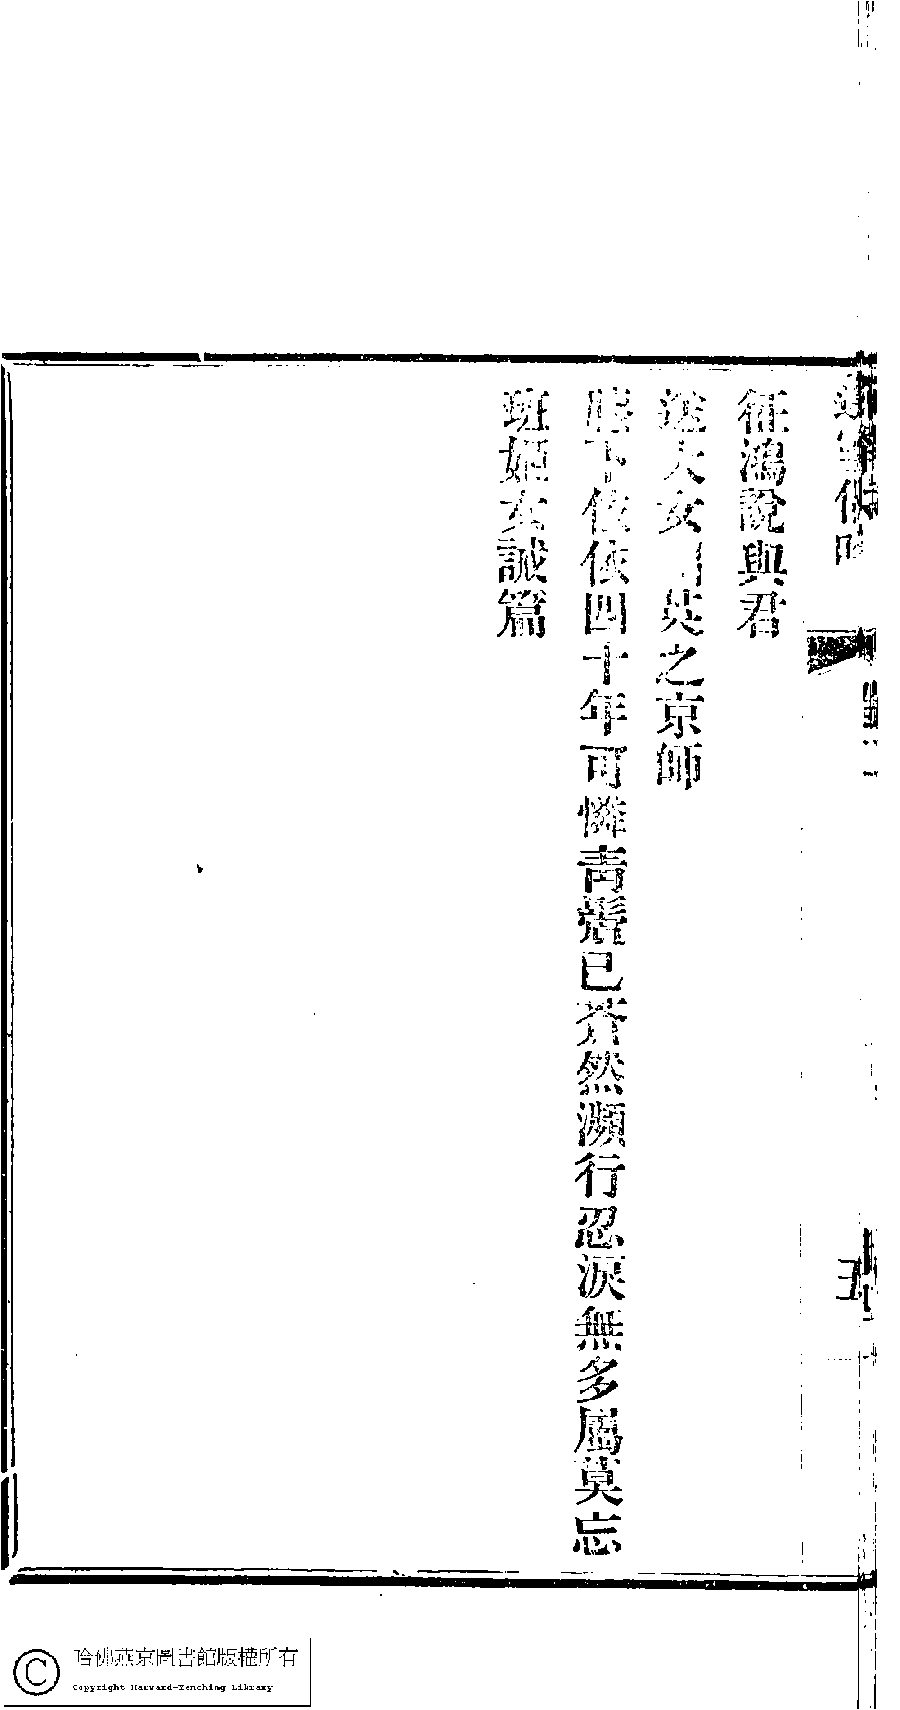 征鴻說與君
送大女引英之京師
膝下依依四十年可憐青鬢已蒼然瀕行忍淚無多屬莫忘
班姬女誡篇
五
哈佛燕京圖書館版權所有
Copyright Harvard-Yenching Library